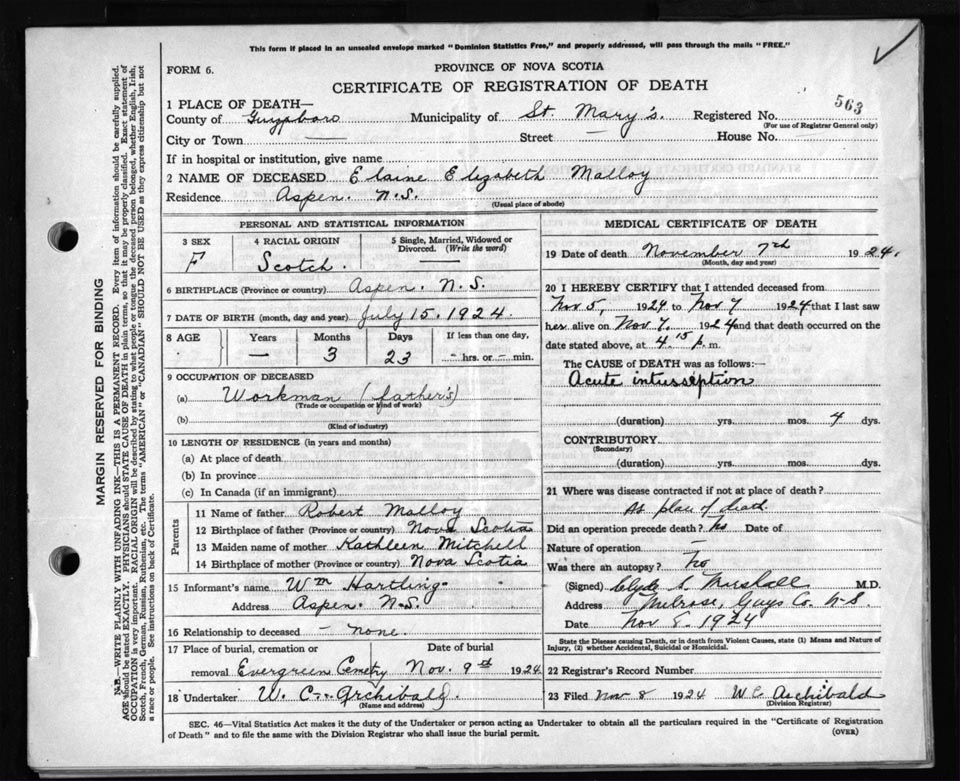 This form if placed in an unsealed envelope marked "Dominion Statistics Free," and properly addressed, will pass through the mails "FREE."
FORM 6.
PROVINCE OF NOVA SCOTIA
CERTIFICATE OF REGISTRATION OF DEATH
563
1 PLACE OF DEATH—
County of Guysboro Municipality of St. Mary's. Registered No.
(For use of Registrar General only)
City or Town — Street — House No.
If in hospital or institution, give name
2 NAME OF DECEASED Elaine Elizabeth Malloy
Residence Aspen. N.S.
(Usual place of abode)
PERSONAL AND STATISTICAL INFORMATION
3 SEX 4 RACIAL ORIGIN 5 Single, Married, Widowed or Divorced. (Write the word)
F Scotch.
6 BIRTHPLACE (Province or country) Aspen. N.S.
7 DATE OF BIRTH (month, day and year) July 15. 1924.
8 AGE Years Months Days If less than one day,
— 3 23 - hrs. or - min.
9 OCCUPATION OF DECEASED
(a) Workman (father's)
(Trade or occupation or kind of work)
(b)
(Kind of industry)
10 LENGTH OF RESIDENCE (in years and months)
(a) At place of death
(b) In province
(c) In Canada (if an immigrant)
Parents
11 Name of father Robert Malloy
12 Birthplace of father (Province or country) Nova Scotia
13 Maiden name of mother Kathleen Mitchell
14 Birthplace of mother (Province or country) Nova Scotia
15 Informant's name Wm Hartling
Address Aspen. N.S.
16 Relationship to deceased — none.
17 Place of burial, cremation or Date of burial
removal Evergreen Cemetry Nov. 9th 1924
18 Undertaker W. C. Archibald.
(Name and address)
MEDICAL CERTIFICATE OF DEATH
19 Date of death November 7th 1924.
(Month, day and year)
20 I HEREBY CERTIFY that I attended deceased from
Nov 5, 1924 to Nov 7 1924 that I last saw
her alive on Nov 7, 1924 and that death occurred on
date stated above, at 4 15 p. m.
The CAUSE of DEATH was as follows:—
Acute intusseption
(duration) yrs. mos. 4 dys.
CONTRIBUTORY
(Secondary)
(duration) yrs. mos. dys.
21 Where was disease contracted if not at place of death?
At place of death
Did an operation precede death? No Date of
Nature of operation —
Was there an autopsy? No
(Signed) Clyde S. Marshall M.D.
Address Melrose, Guys Co. N.S.
Date Nov 8. 1924
State the Disease causing Death, or in death from Violent Causes, state (1) Means and Nature of Injury, (2) whether Accidental, Suicidal or Homicidal.
22 Registrar's Record Number
23 Filed Nov 8 1924 W C Archibald
(Division Registrar)
SEC. 46—Vital Statistics Act makes it the duty of the Undertaker or person acting as Undertaker to obtain all the particulars required in the "Certificate of Registration
of Death" and to file the same with the Division Registrar who shall issue the burial permit.
(OVER)
MARGIN RESERVED FOR BINDING
N.B.—WRITE PLAINLY WITH UNFADING INK—THIS IS A PERMANENT RECORD. Every item of information should be carefully supplied.
AGE should be stated EXACTLY. PHYSICIANS should STATE CAUSE OF DEATH in plain terms, so that it may be properly classified. Exact statement of
OCCUPATION is very important. RACIAL ORIGIN will be described by stating to what people or tongue the deceased person belonged, whether English, Irish,
Scotch, French, German, Russian, Ruthenian, etc. The terms "AMERICAN" or "CANADIAN" SHOULD NOT BE USED as they express citizenship but not
a race or people. See instructions on back of Certificate.